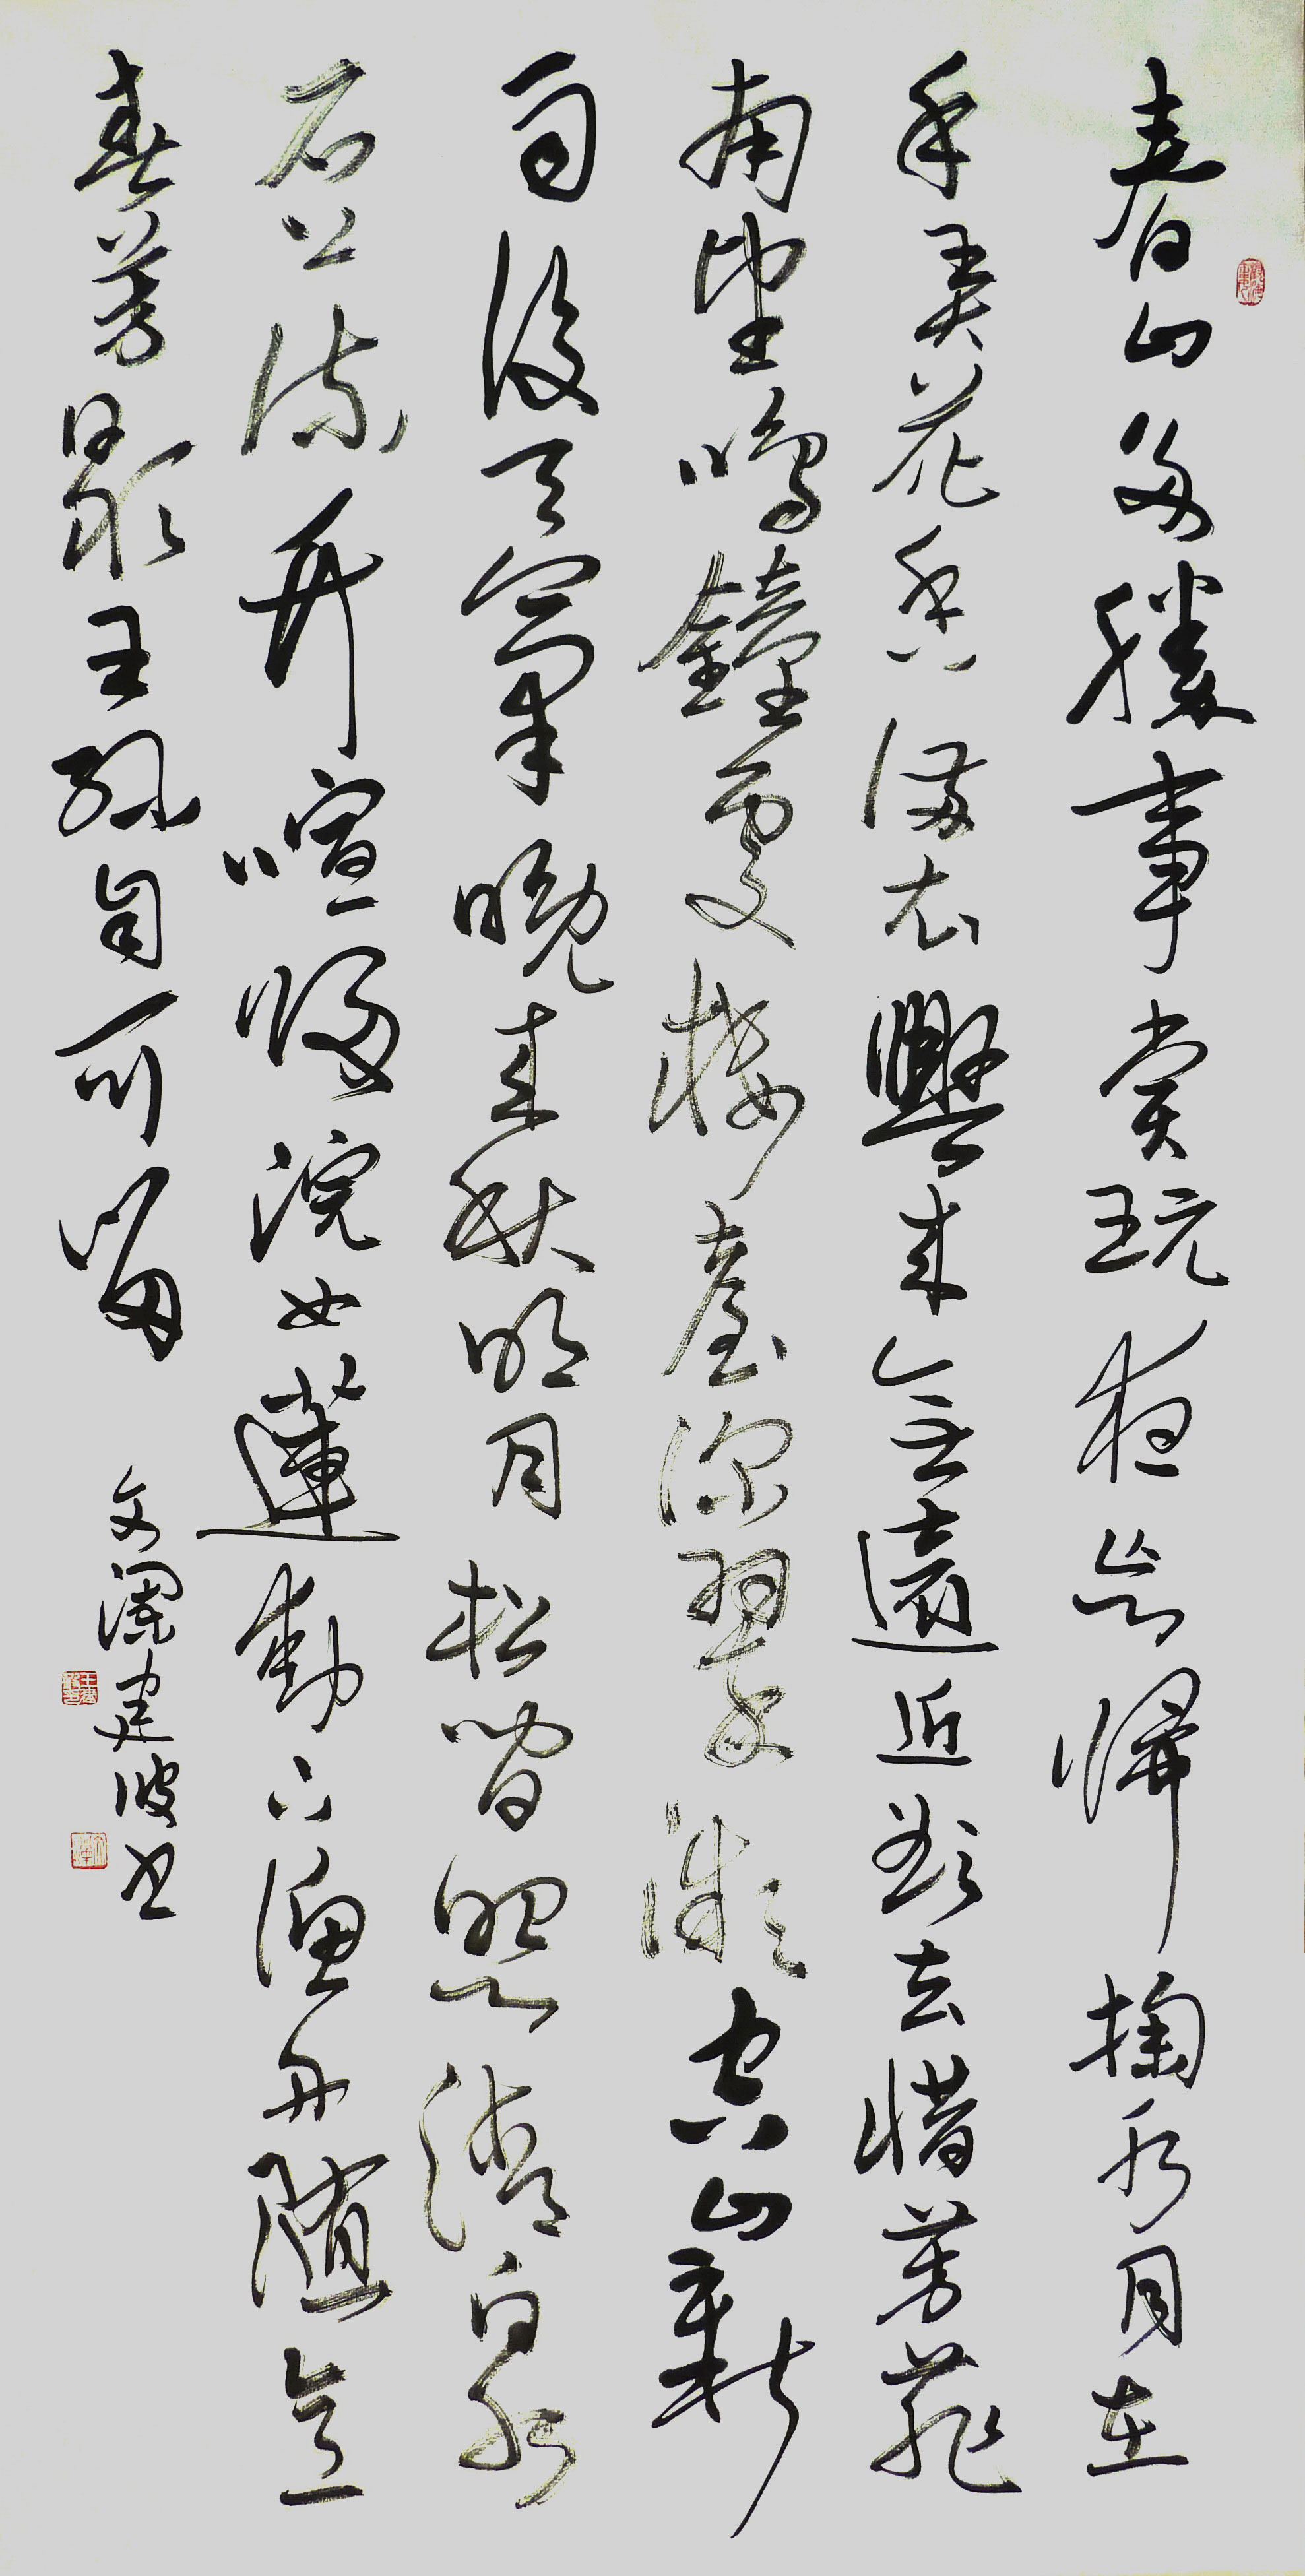 春山多勝事賞玩夜忘歸掬水月在
手弄花香滿衣興來無遠近欲去惜芳菲
南望鳴鐘處樓臺深翠微空山新
雨後天氣晚來秋明月松間照清泉
石上流竹喧歸浣女蓮動下漁舟隨意
春芳歇王孫自可留
文瀾建波书